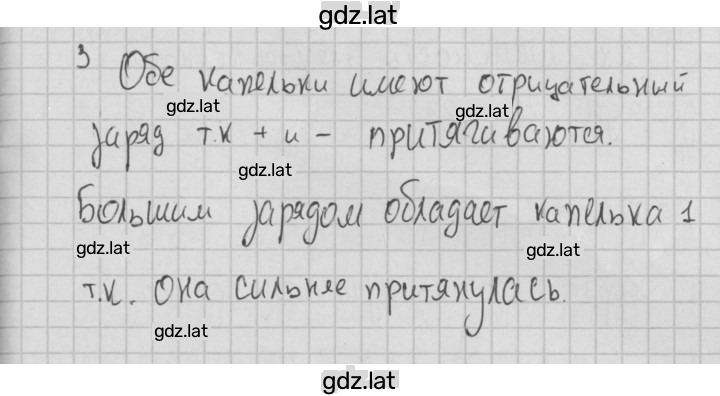 gdz.lat
3 Обе капельки имеют отрицательный
gdz.lat gdz.lat
заряд т.к + и - притягиваются.
gdz.lat
Большим зарядом обладает капелька 1
gdz.lat gdz.lat
т.к. она сильнее притянулась.
gdz.lat
gdz.lat